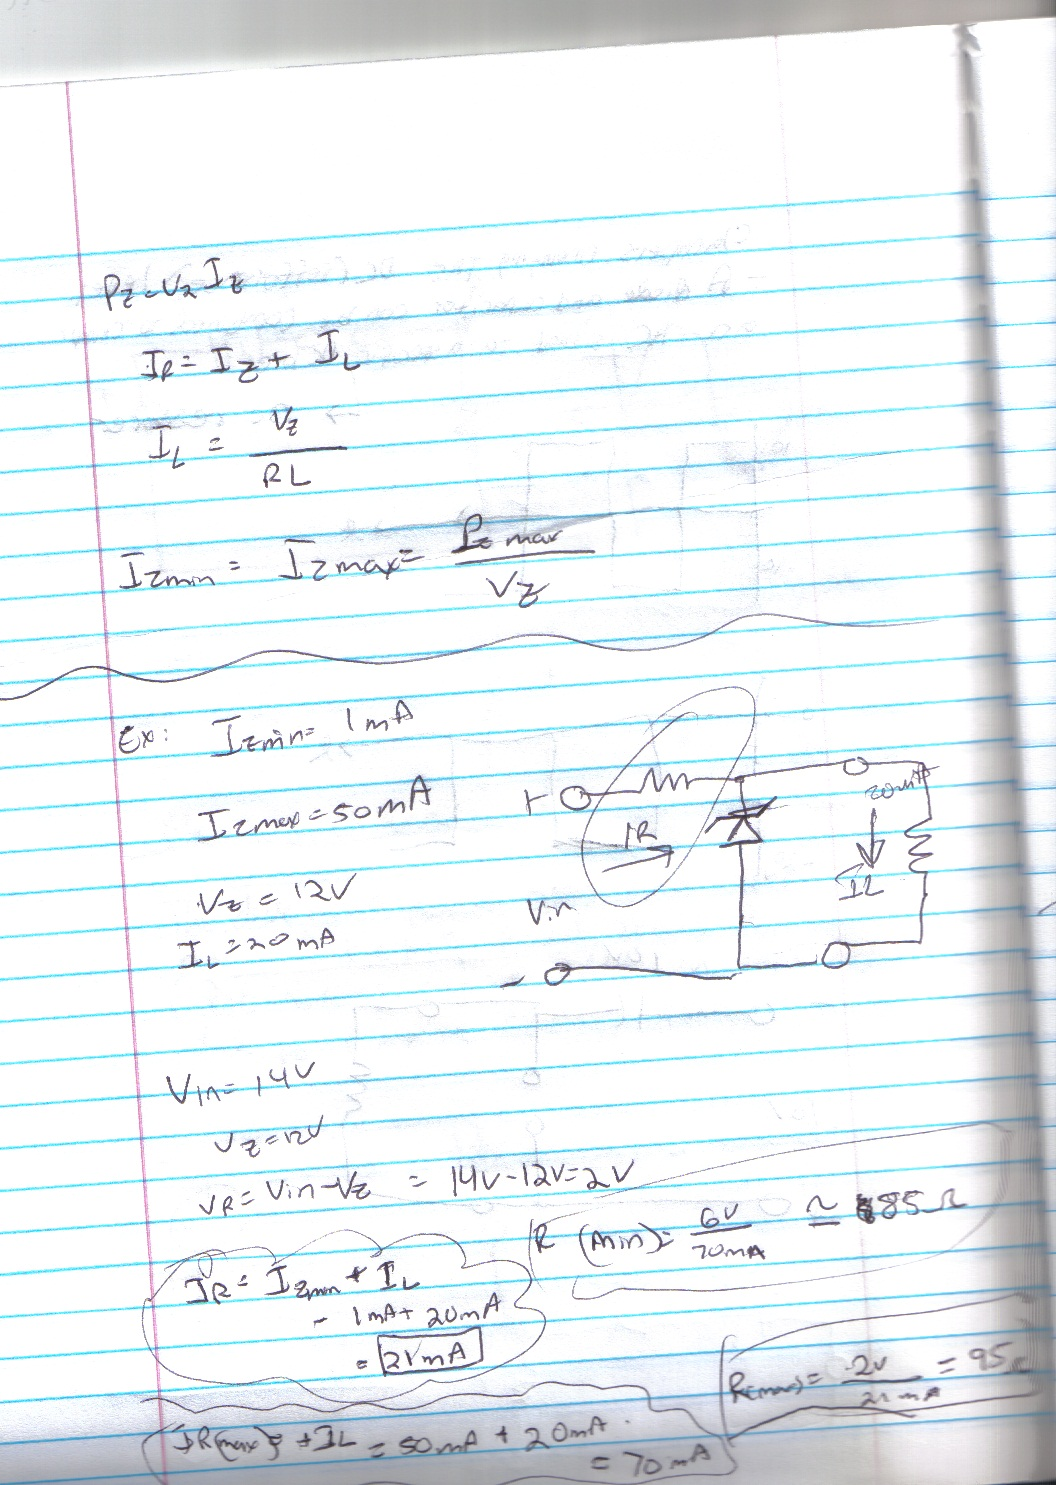 Pz = Vz Iz
IR = Iz + IL
IL = Vz / RL
Izmin = Izmax = Pz max / Vz
Ex: Izmin = 1mA
Izmax = 50mA
Vz = 12V
IL = 20mA
+
IR
20mA
IL
Vin
-
Vin = 14V
Vz = 12V
VR = Vin - Vz = 14V - 12V = 2V
R (min) = 6V / 70mA ≃ 85Ω
IR = Izmin + IL
= 1mA + 20mA
= 21mA
R(max) = 2V / 21mA = 95Ω
IR(max) = + IL = 50mA + 20mA
= 70mA